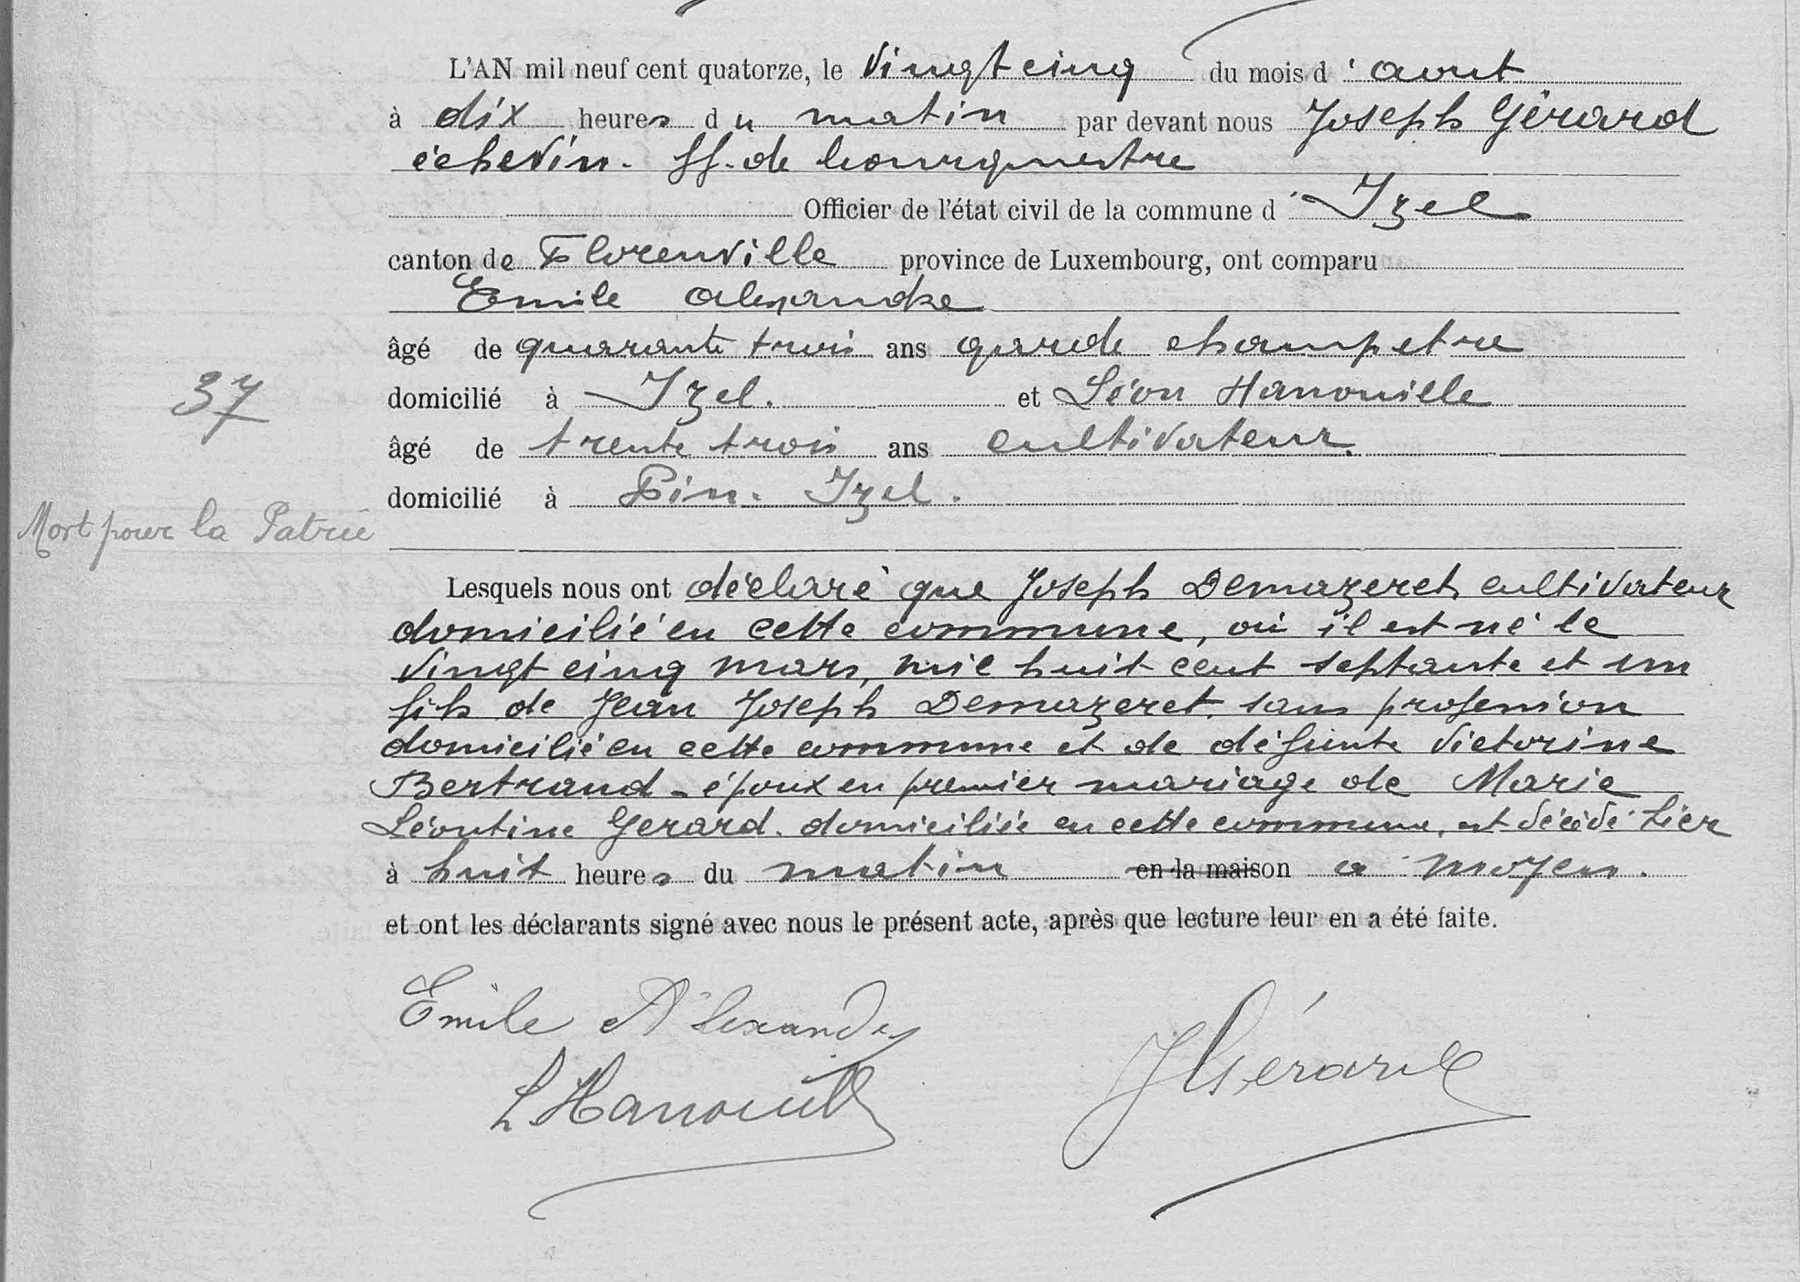 L'AN mil neuf cent quatorze, le vingt cinq du mois d'aout
à dix heures du matin par devant nous Joseph Gérard
échevin. ff. de bourgmestre
Officier de l'état civil de la commune d'Izel
canton de Florenville province de Luxembourg, ont comparu
Emile Alexandre
âgé de quarante trois ans garde champetre
37
domicilié à Izel. et Léon Hanouille
âgé de trente trois ans cultivateur.
domicilié à Pin. Izel.
Mort pour la Patrie
Lesquels nous ont déclaré que Joseph Demazeret, cultivateur
domicilié en cette commune, où il est né le
vingt cinq mars, mil huit cent septante et un
fils de Jean Joseph Demazeret. sans profession
domicilié en cette commune et de défunte Victorine
Bertrand - époux en premier mariage de Marie
Léontine Gerard. domiciliée en cette commune, est décédé hier
à huit heures du matin en la maison a moyen.
et ont les déclarants signé avec nous le présent acte, après que lecture leur en a été faite.
Emile Alexandre
L Hanouille
J Gérard